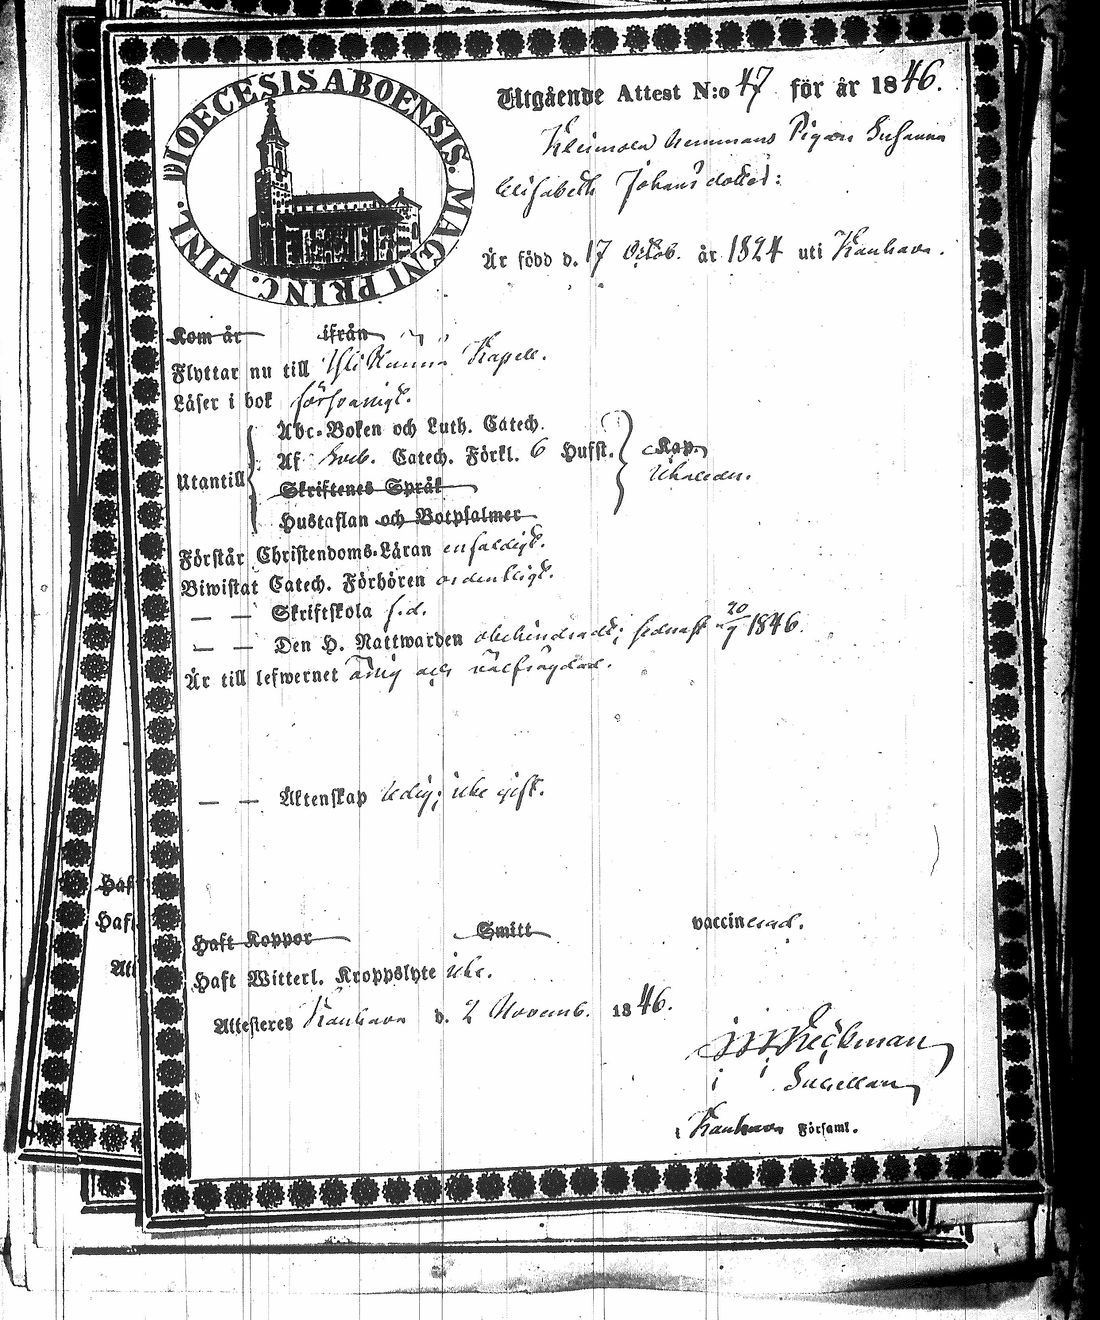 DIOECESIS ABOENSIS. MAGNI PRINC. FINL.
Utgående Attest N:o 47 för år 1846.
Hemmans Pigan Susanna
Elisabeth Johansdotter:
Är född d. 17 Octob. år 1824 uti Kauhava.
Kom år ifrån
Flyttar nu till Ylikannus Kapell.
Läser i bok försvarligt.
Utantill
Abc-Boken och Luth. Catech.
Af Sveb. Catech. Förkl. 6 Hufst. Kap.
Skriftenes Språk
Hustaflan och Botpsalmer
Förstår Christendoms-Läran enfaldigt.
Biwistat Catech. Förhören ordentligt.
— — Skriftskola f.d.
— — Den H. Nattwarden obehindradt; sednast 20/9 1846.
Är till lefwernet ärlig och välfrägdad.
— — Äktenskap ledig; icke gift.
Haft Koppor Smitt vaccinerad.
Haft Witterl. Kroppslyte icke.
Attesteres Kauhava d. 2 Novemb. 1846.
i Kauhava Församl.
Haft
Haft
Att